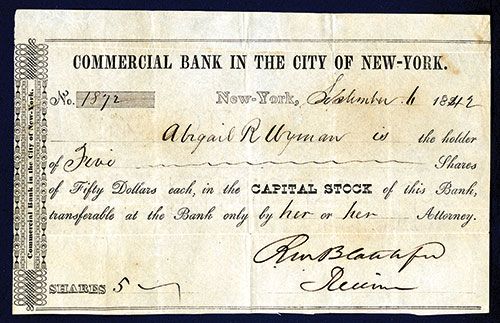 COMMERCIAL BANK IN THE CITY OF NEW-YORK.
No. 1872 New-York, September 6 1842
Abigail R Wyman is the holder
of Five Shares
of Fifty Dollars each, in the CAPITAL STOCK of this Bank,
transferable at the Bank only by her or her Attorney.
Receiver
SHARES 5
Commercial Bank in the City of New-York.